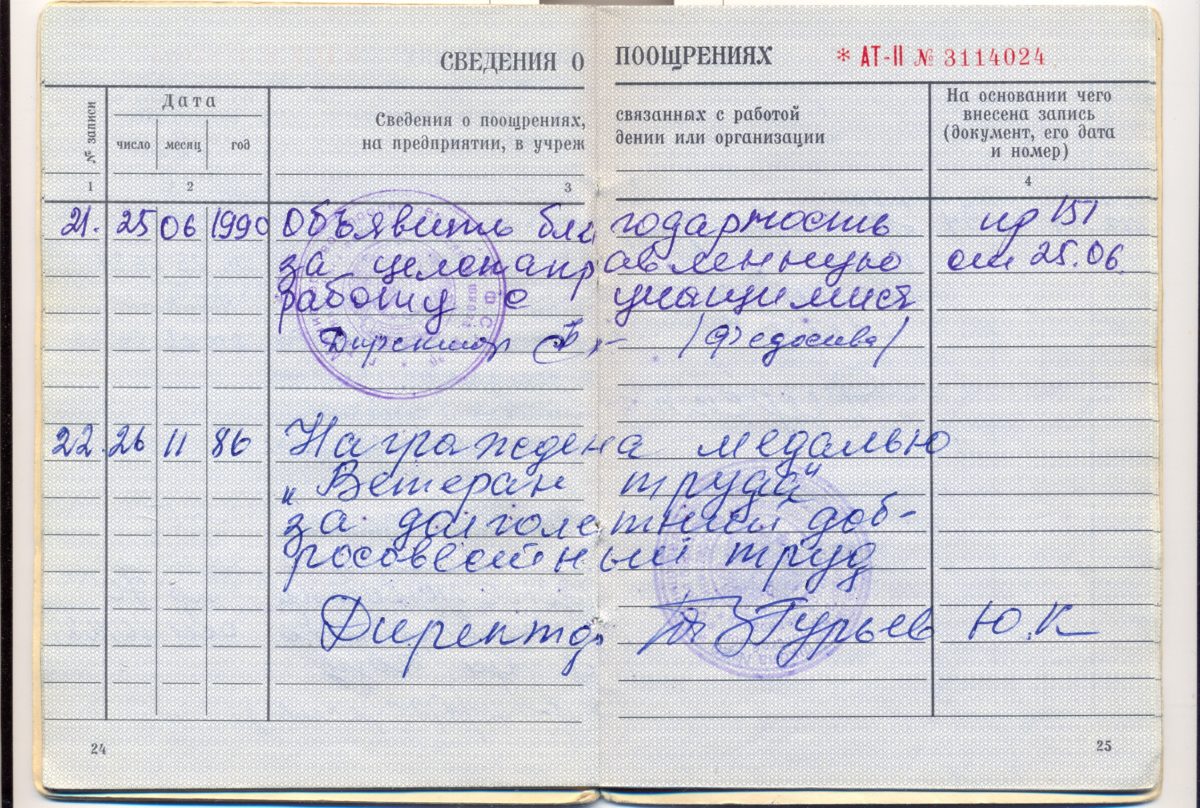 СВЕДЕНИЯ О ПООЩРЕНИЯХ * АТ-II № 3114024
№ записи
Дата
число месяц год
Сведения о поощрениях, связанных с работой
на предприятии, в учреждении или организации
На основании чего
внесена запись
(документ, его дата
и номер)
1 2 3 4
21. 25 06 1990 Объявить благодарность пр 151
за целенаправленную от 25.06.
работу с учащимися
Директор /Федосева/
22. 26 11 86 Награждена медалью
„Ветеран труда"
за долголетний доб-
росовестный труд
Директор Гурьев Ю.К
24
25